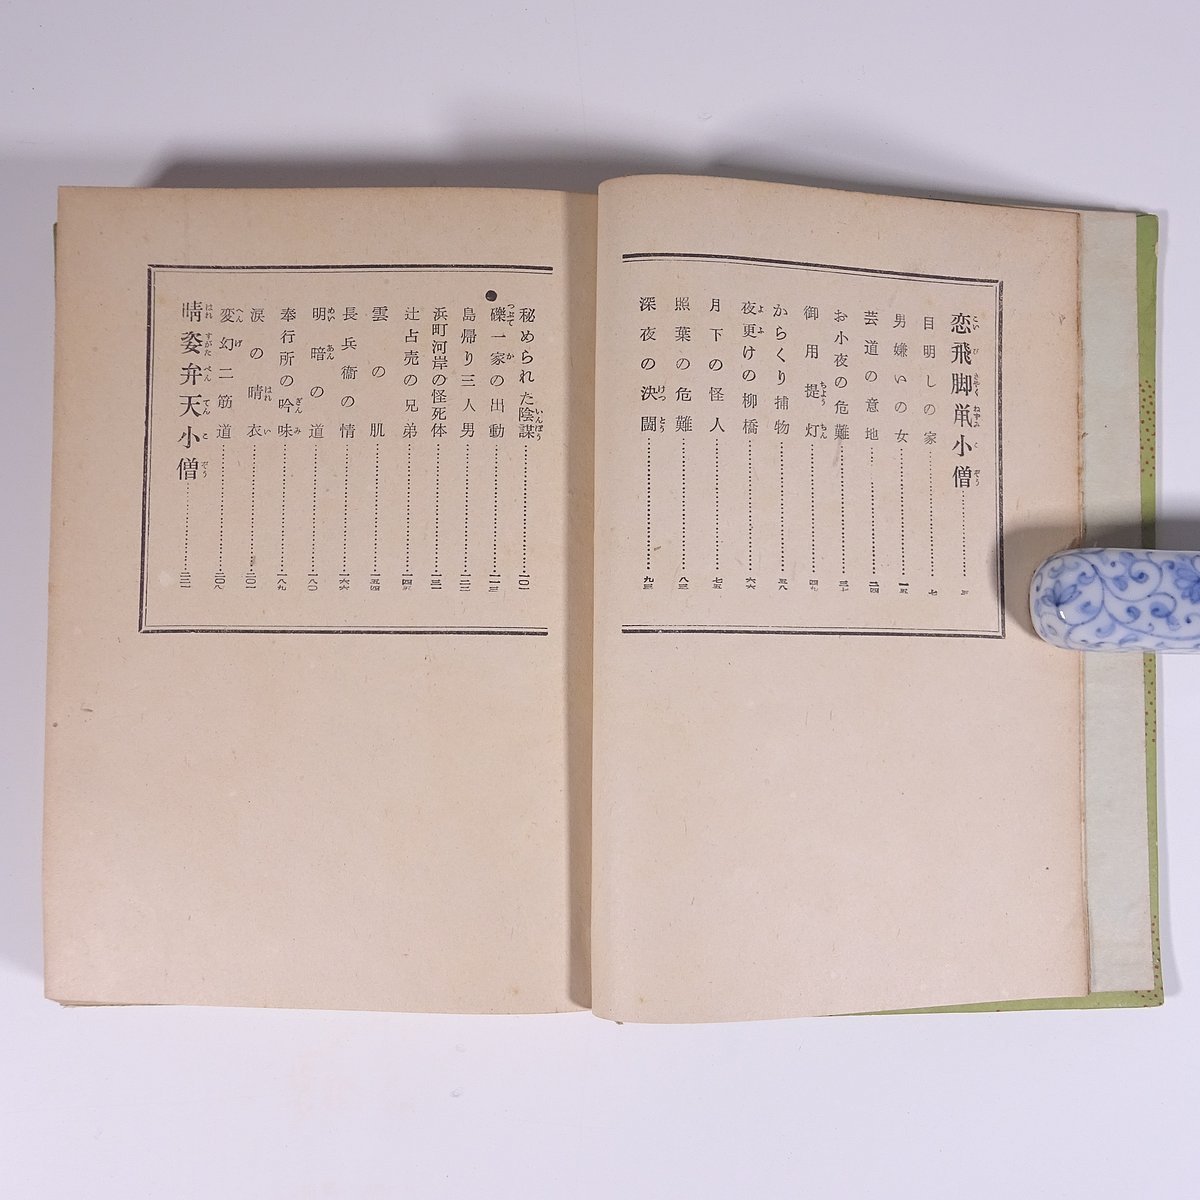 恋飛脚鼡小僧……三
目明しの家……七
男嫌いの女……一五
芸道の意地……二四
お小夜の危難……三七
御用提灯……四七
からくり捕物……五八
夜更けの柳橋……六六
月下の怪人……七五
照葉の危難……八三
深夜の決闘……九三
秘められた陰謀……一〇一
礫一家の出動……一一三
島帰り三人男……一二二
浜町河岸の怪死体……一三一
辻占売の兄弟……一四五
雲の肌……一五四
長兵衞の情……一六六
明暗の道……一八〇
奉行所の吟味……一八九
涙の晴衣……二〇一
変幻二筋道……二〇八
晴姿弁天小僧……二三一